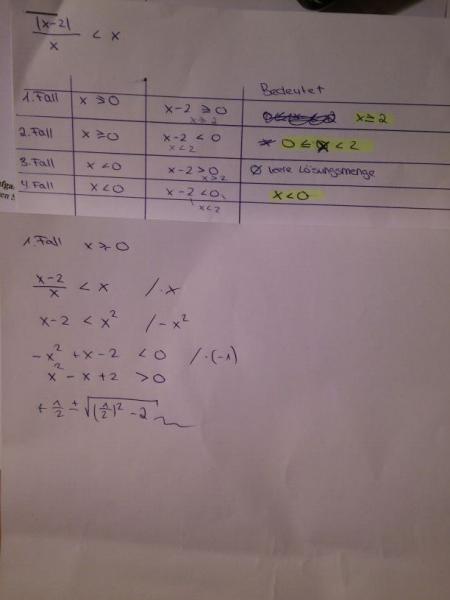 |x-2|
x
< x
Bedeutet
1. Fall x ≥ 0 x-2 ≥ 0 x ≥ 2
x ≥ 2
2. Fall x ≥ 0 x-2 < 0 0 ≤ x < 2
x < 2
3. Fall x < 0 x-2 > 0 ∅ leere Lösungsmenge
x > 2
4. Fall x < 0 x-2 < 0 x < 0
x < 2
1. Fall x ≥ 0
x-2
x
< x /·x
x-2 < x² /-x²
-x² + x - 2 < 0 /·(-1)
x² - x + 2 > 0
+ 1/2 ± √((1/2)² - 2)